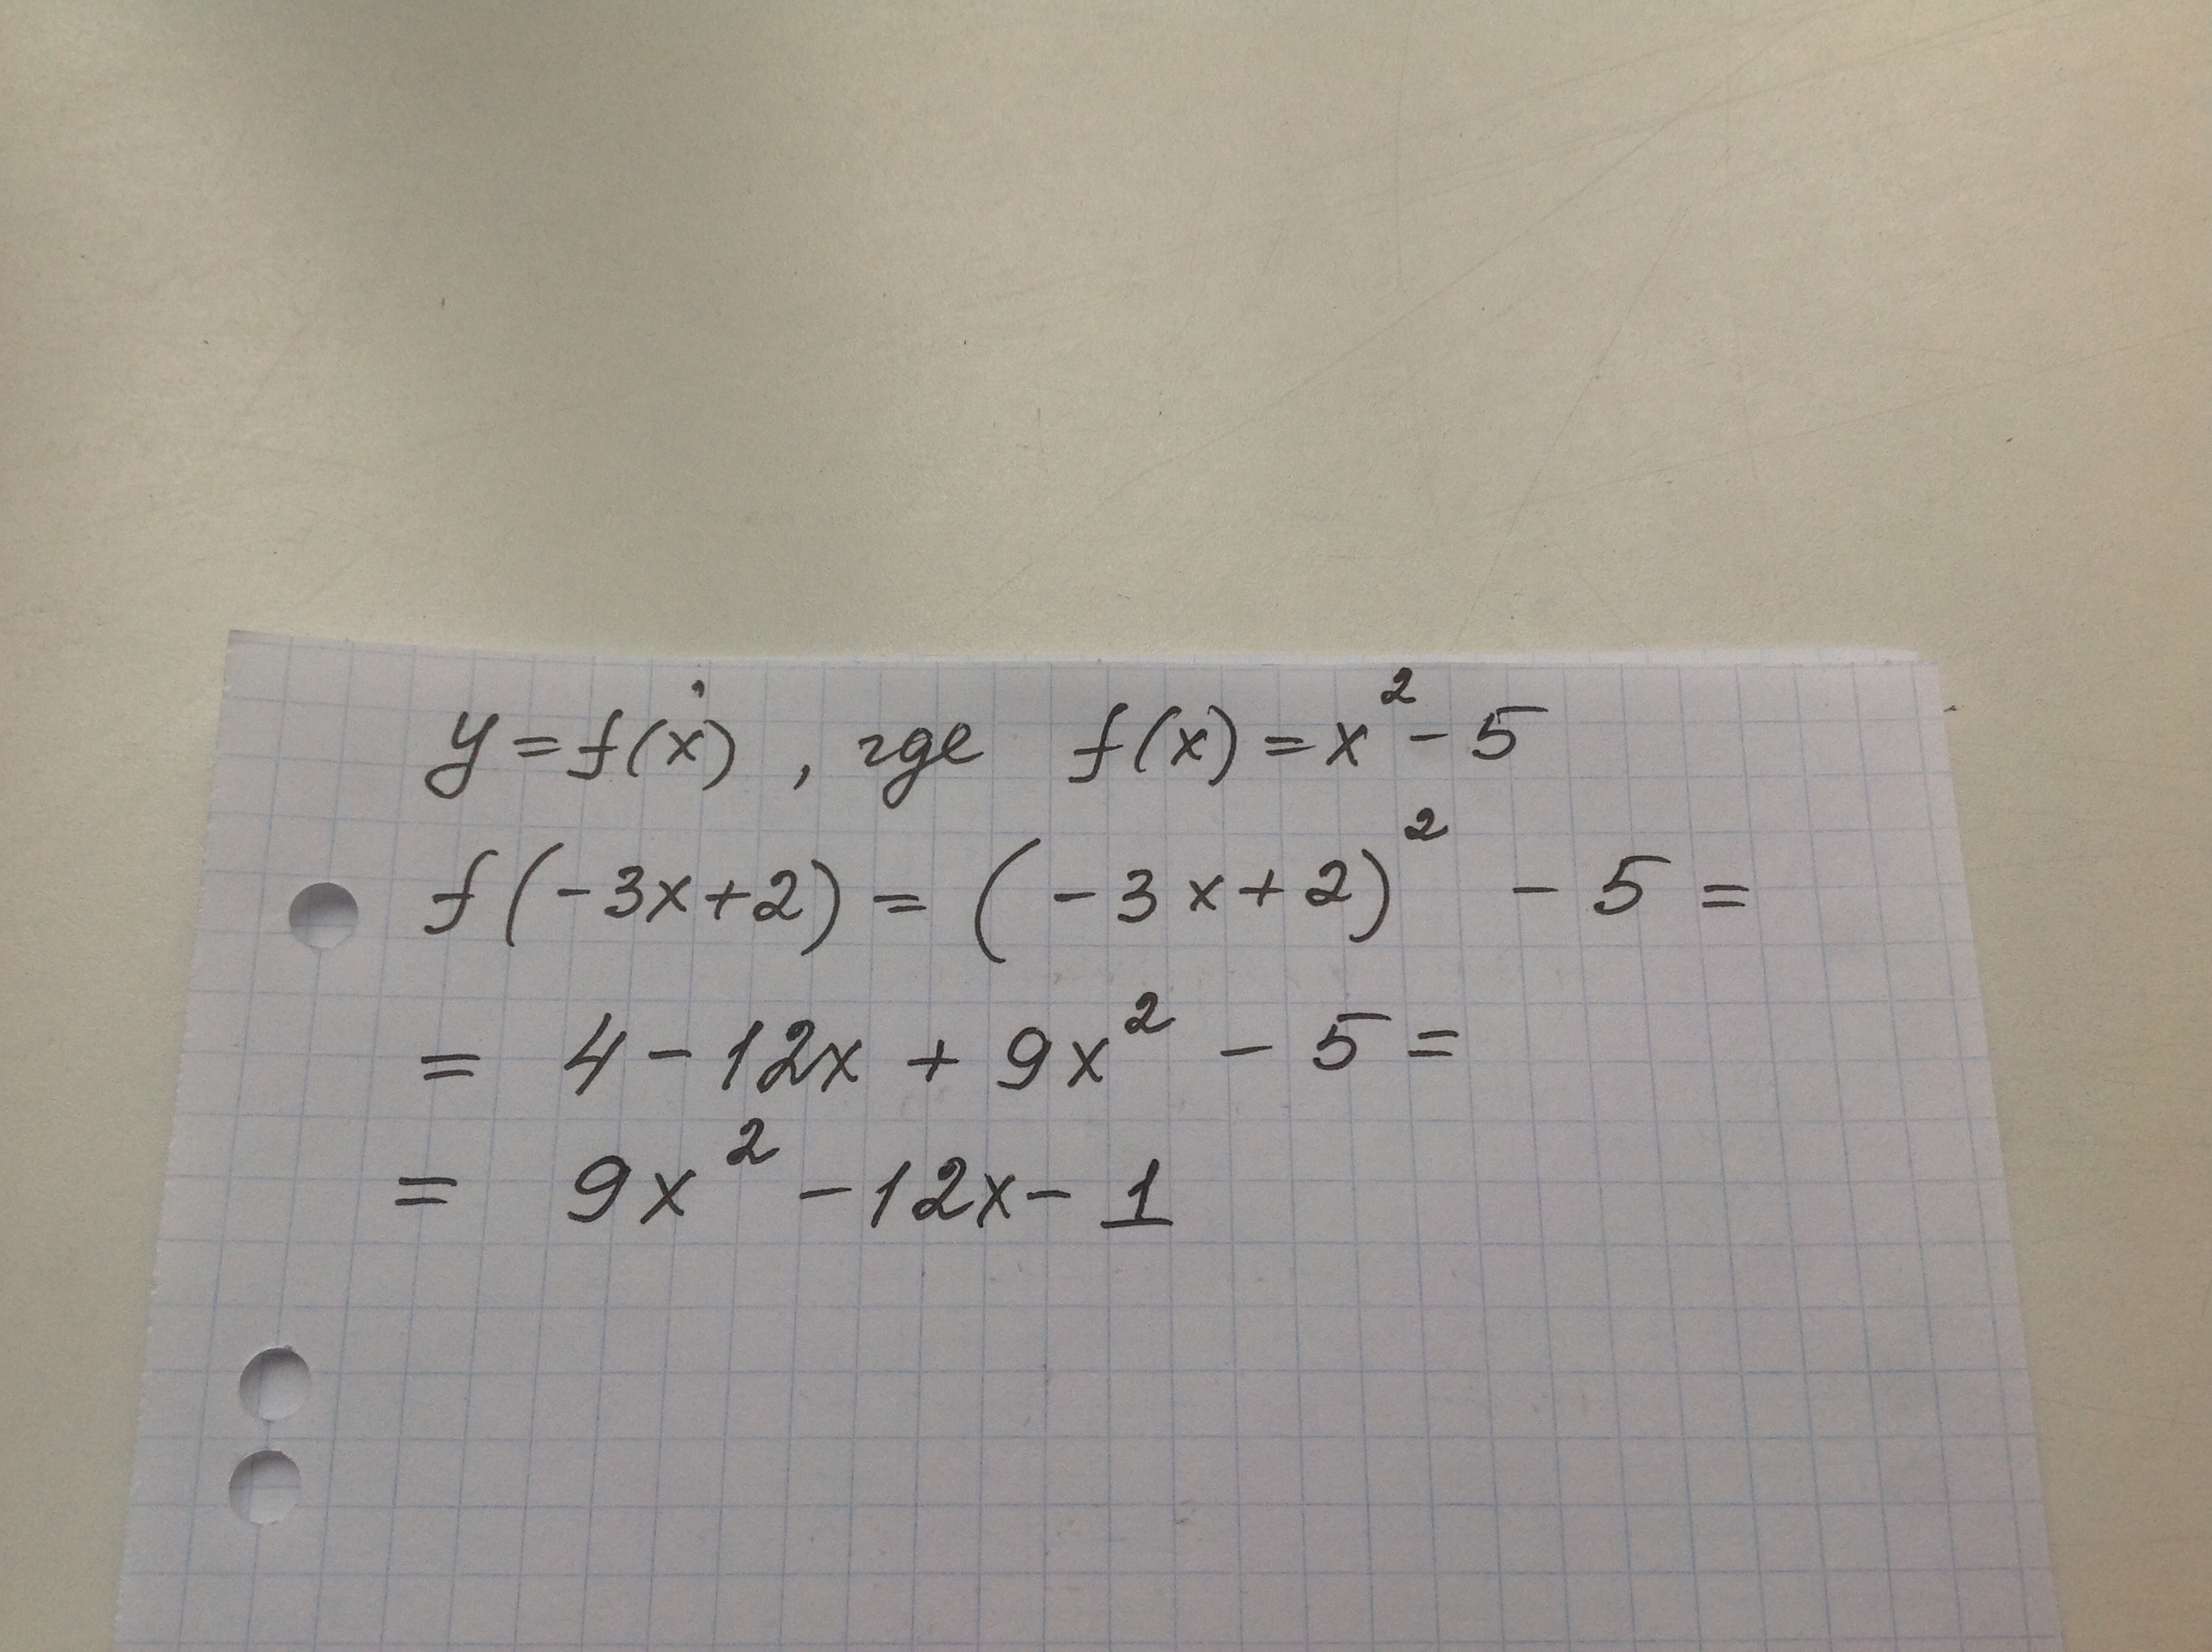 y = f(x), где f(x) = x² - 5
f(-3x+2) = (-3x+2)² - 5 =
= 4 - 12x + 9x² - 5 =
= 9x² - 12x - 1